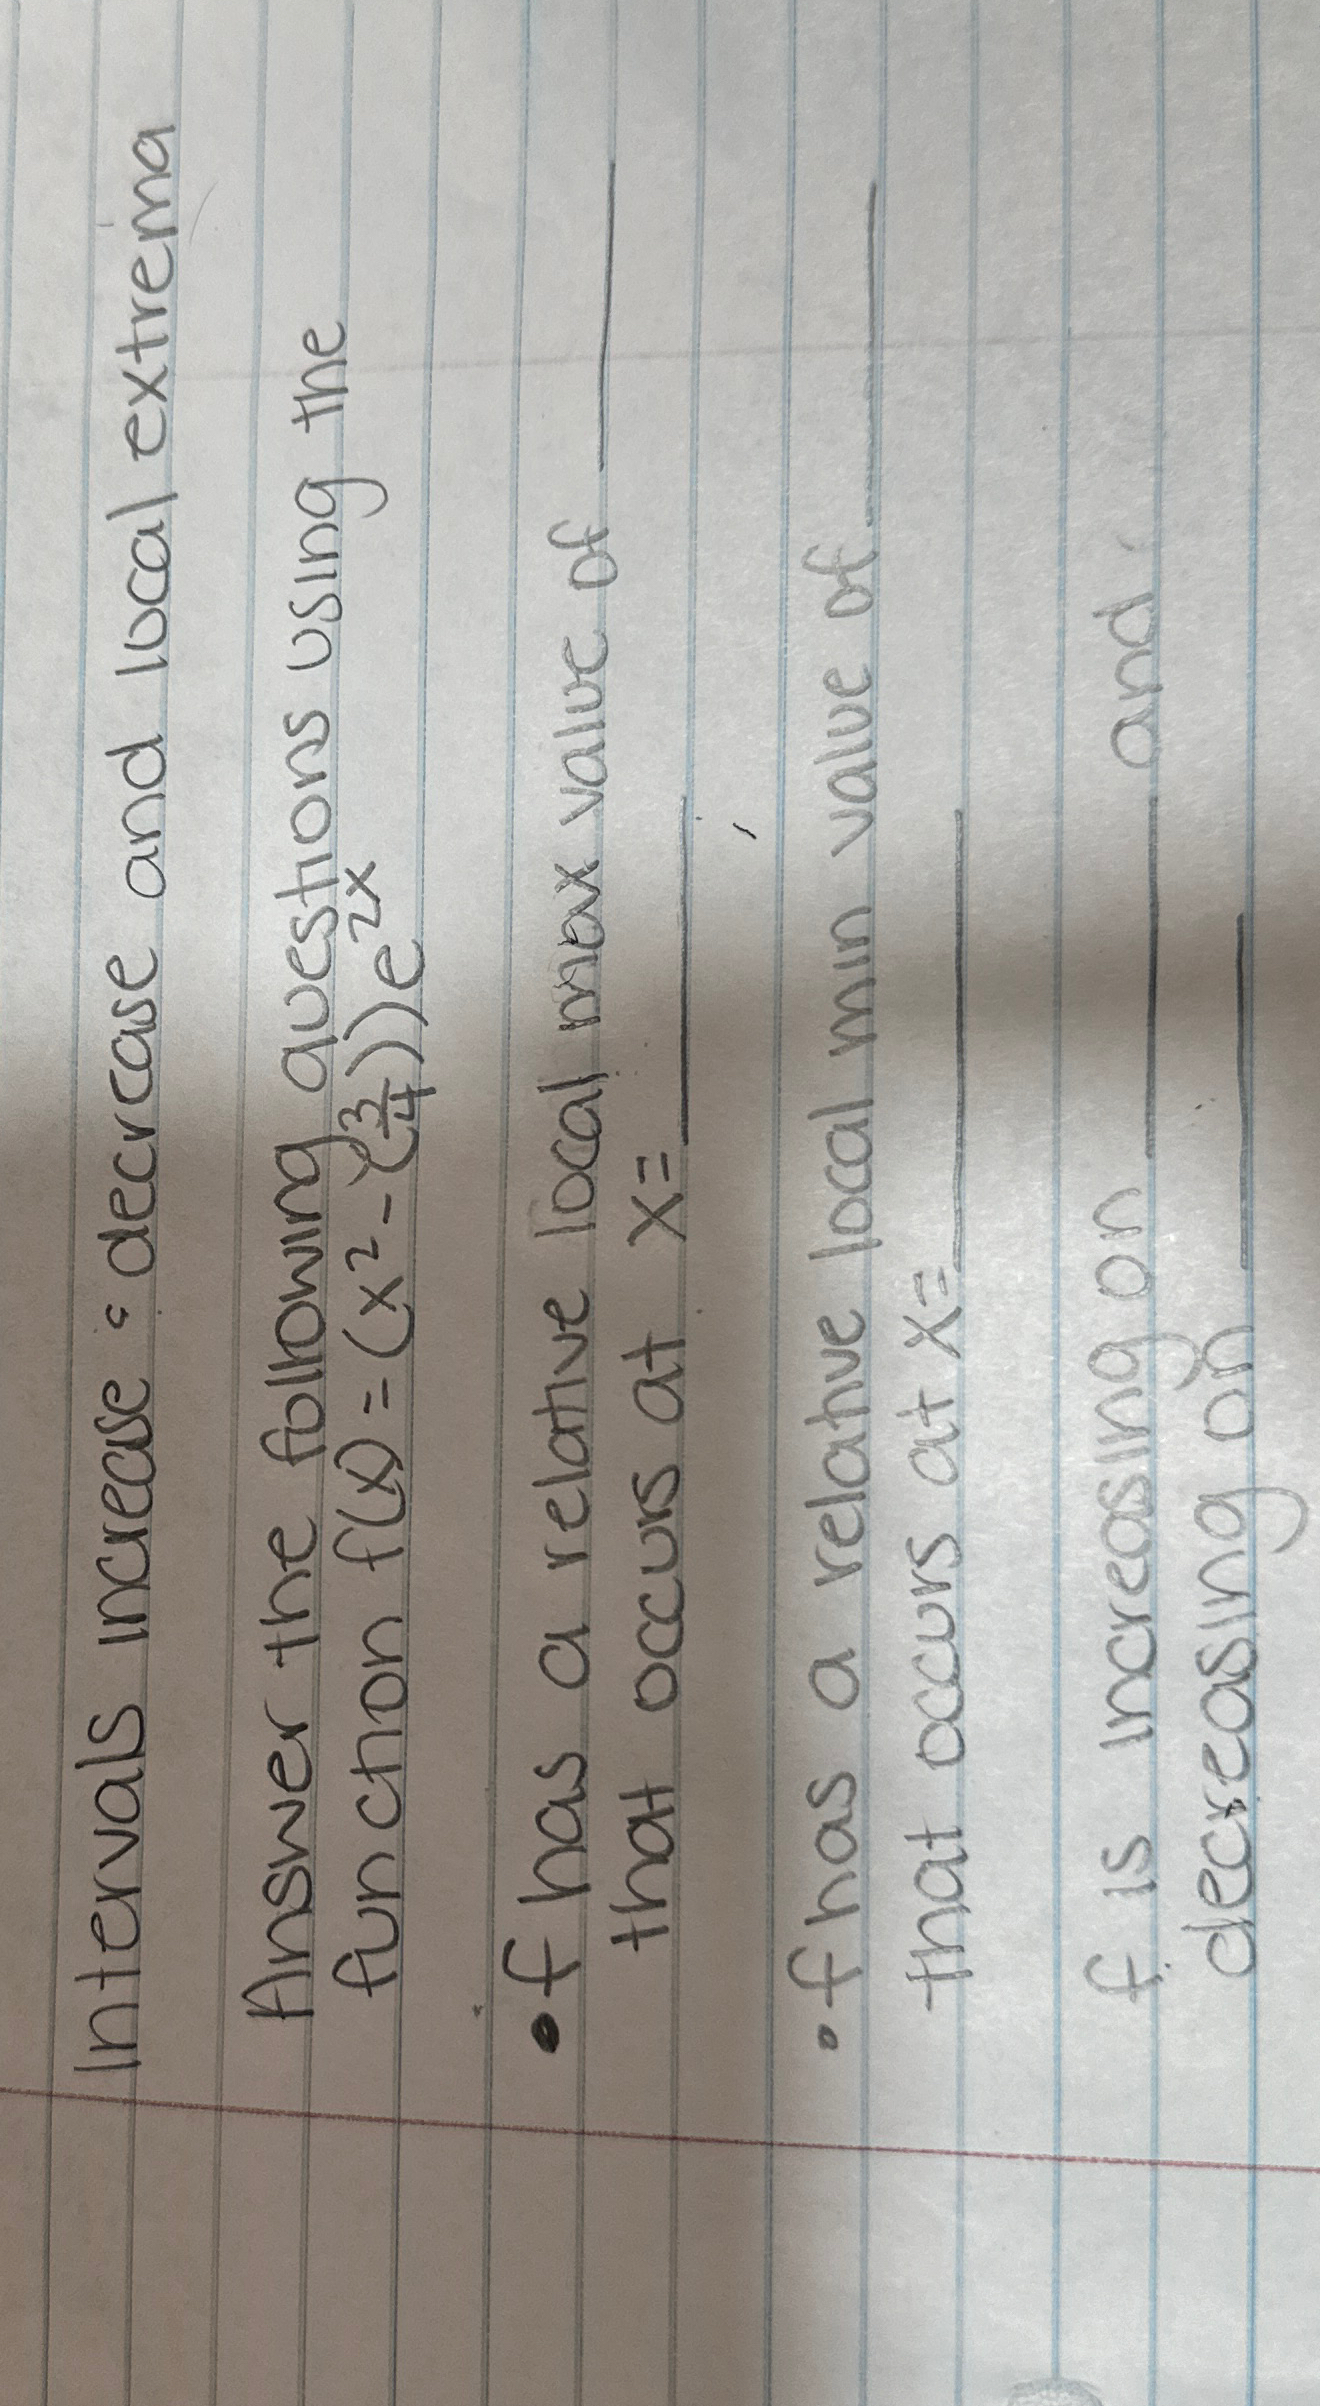 Intervals increase & decrease and local extrema
Answer the following questions using the
function f(x) = (x² - (3/4))e^2x
• f has a relative local max value of ______
that occurs at x= ______
• f has a relative local min value of ______
that occurs at x= ______
f is increasing on ______ and
decreasing on ______